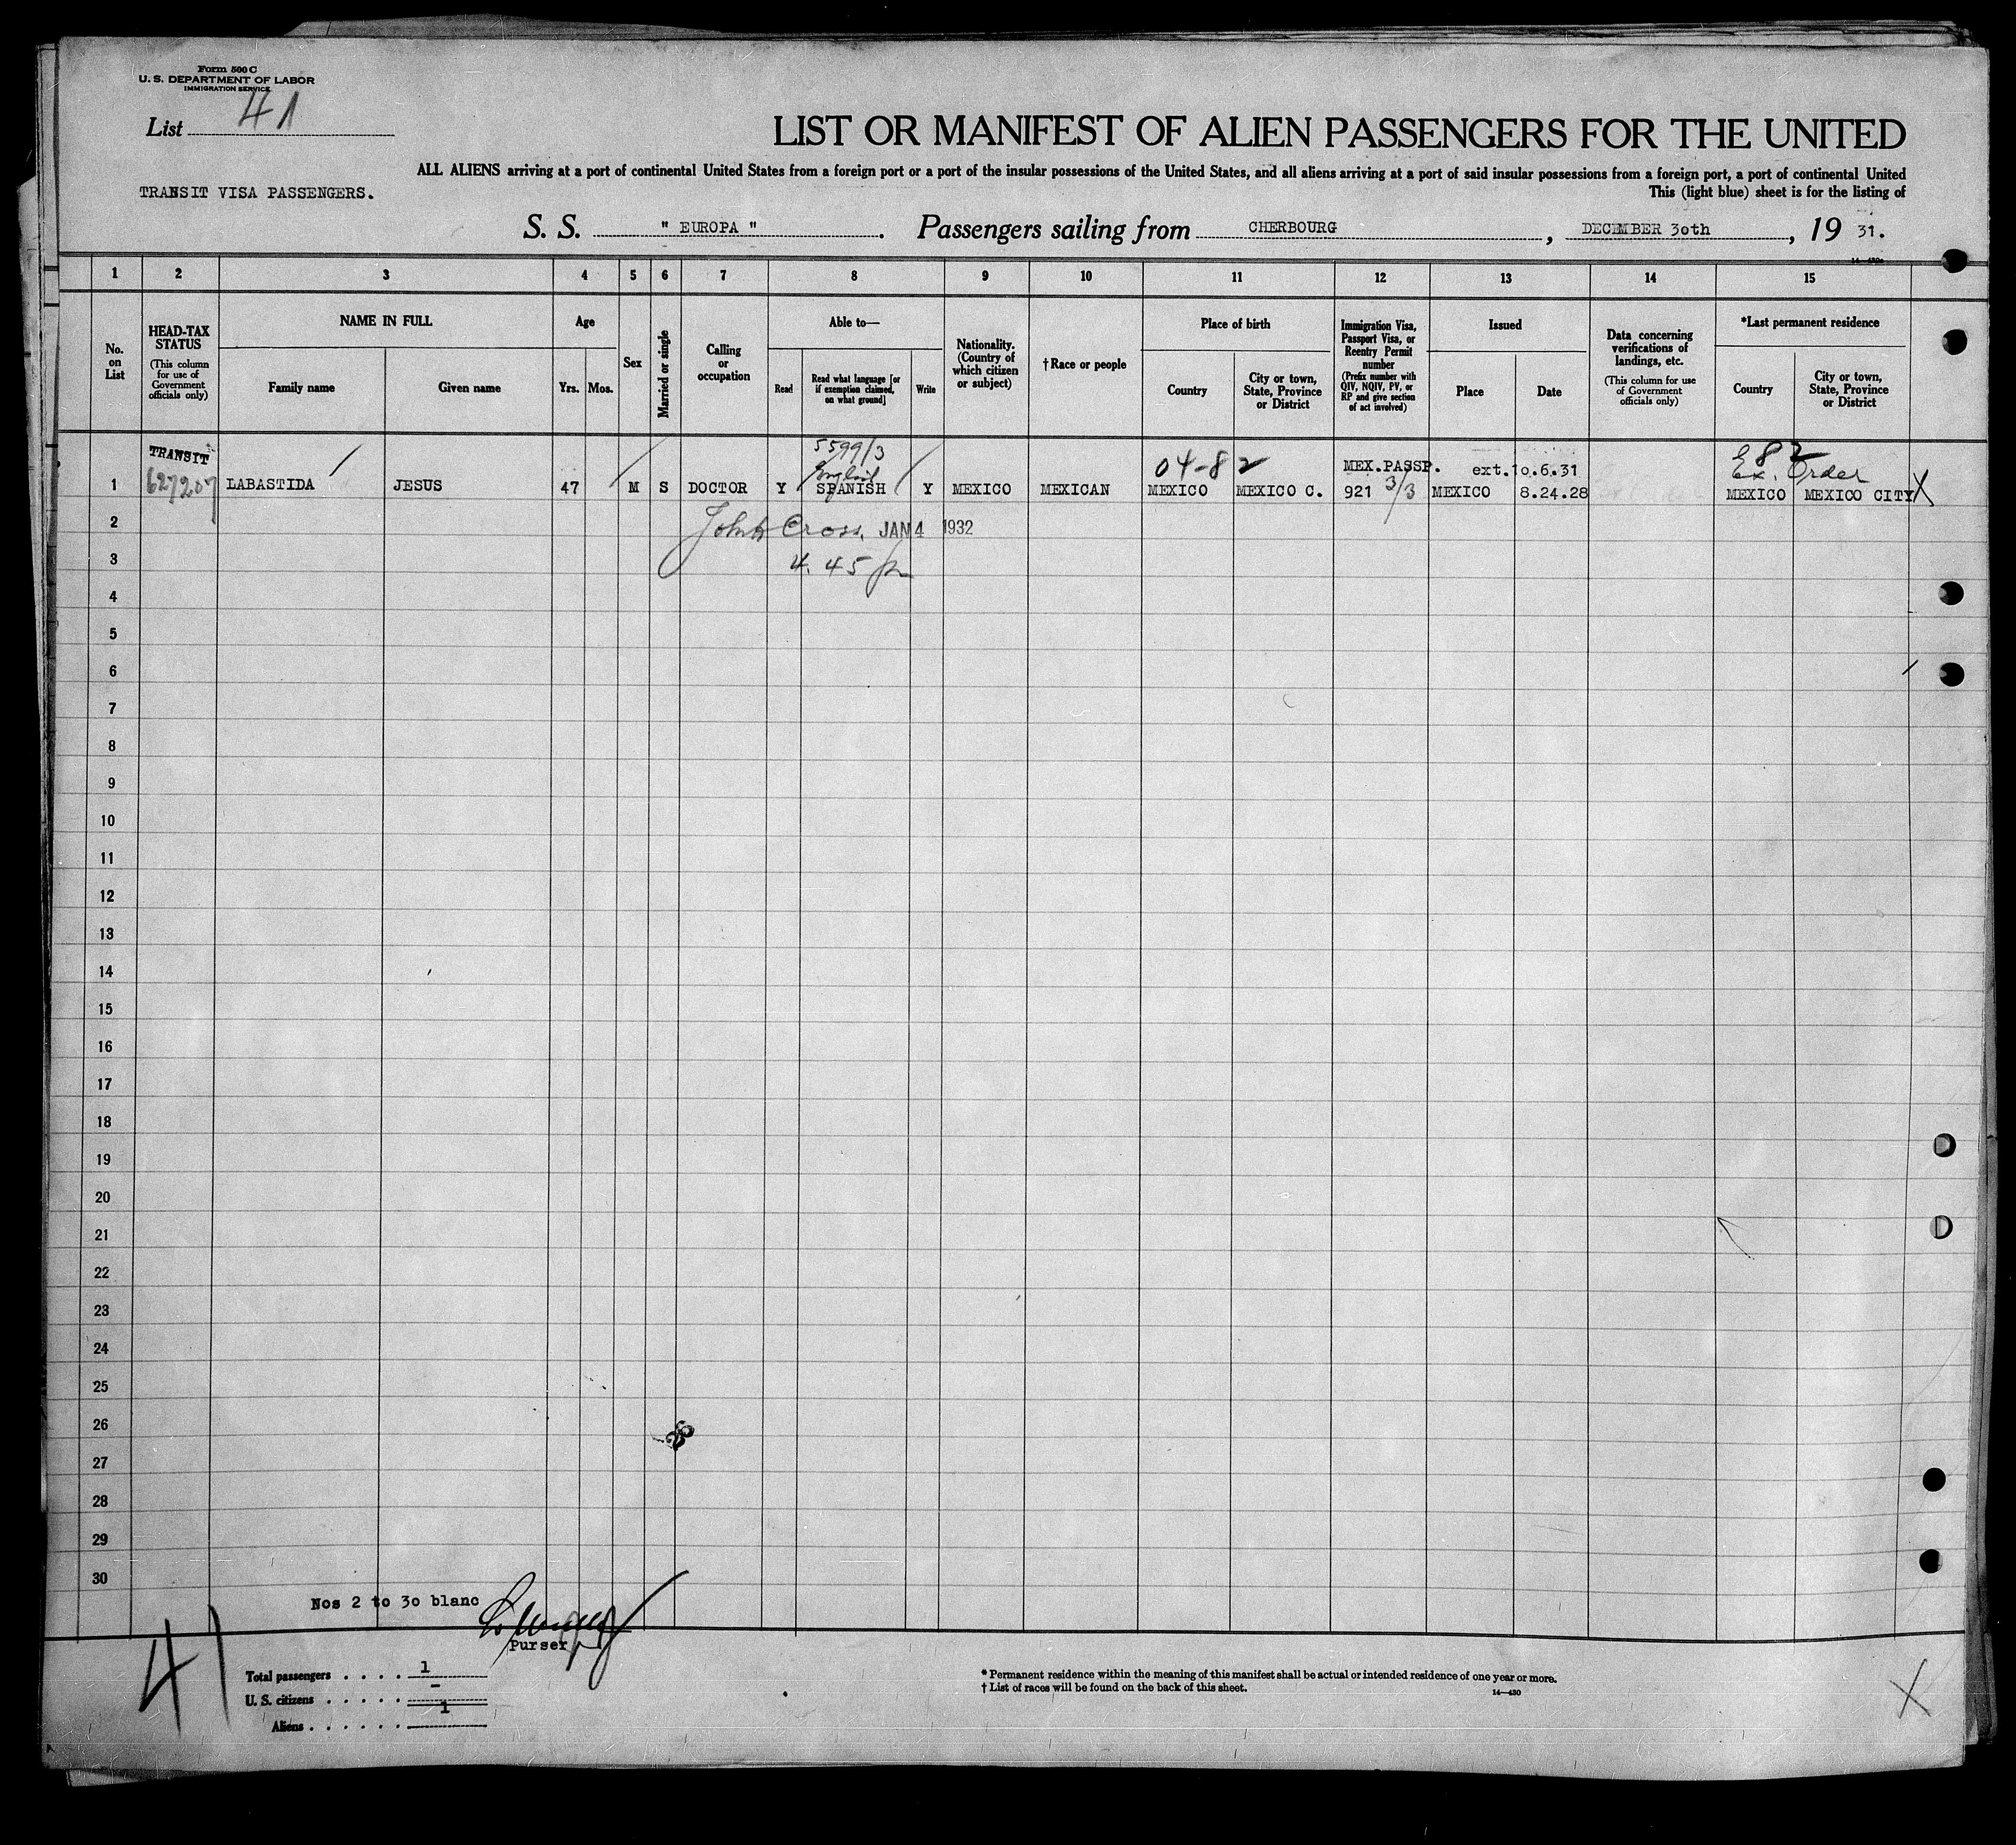 Form 500 C
U. S. DEPARTMENT OF LABOR
IMMIGRATION SERVICE
List 41
LIST OR MANIFEST OF ALIEN PASSENGERS FOR THE UNITED
ALL ALIENS arriving at a port of continental United States from a foreign port or a port of the insular possessions of the United States, and all aliens arriving at a port of said insular possessions from a foreign port, a port of continental United
TRANSIT VISA PASSENGERS.
This (light blue) sheet is for the listing of
S. S. " EUROPA ". Passengers sailing from CHERBOURG, DECEMBER 30th, 19 31.
1 2 3 4 5 6 7 8 9 10 11 12 13 14 15
No. on List
HEAD-TAX STATUS
(This column for use of Government officials only)
NAME IN FULL
Family name
Given name
Age
Yrs. Mos.
Sex
Married or single
Calling or occupation
Able to—
Read
Read what language [or if exemption claimed, on what ground]
Write
Nationality. (Country of which citizen or subject)
†Race or people
Place of birth
Country
City or town, State, Province or District
Immigration Visa, Passport Visa, or Reentry Permit number
(Prefix number with QIV, NQIV, PV, or RP and give section of act involved)
Issued
Place
Date
Data concerning verifications of landings, etc.
(This column for use of Government officials only)
*Last permanent residence
Country
City or town, State, Province or District
TRANSIT 5599/3 04-82 MEX.PASSP. ext.10.6.31 82
627207 English Ex. Order
1 LABASTIDA JESUS 47 M S DOCTOR Y SPANISH Y MEXICO MEXICAN MEXICO MEXICO C. 921 3/3 MEXICO 8.24.28 MEXICO MEXICO CITY X
2 Cross. JAN 4 1932
3 4.45
4
5
6
7
8
9
10
11
12
13
14
15
16
17
18
19
20
21
22
23
24
25
26
27
28
29
30
Nos 2 to 30 blanc
Purser
41
Total passengers . . . . 1
U. S. citizens . . . . . -
Aliens . . . . . . 1
* Permanent residence within the meaning of this manifest shall be actual or intended residence of one year or more.
† List of races will be found on the back of this sheet.
14—430
X